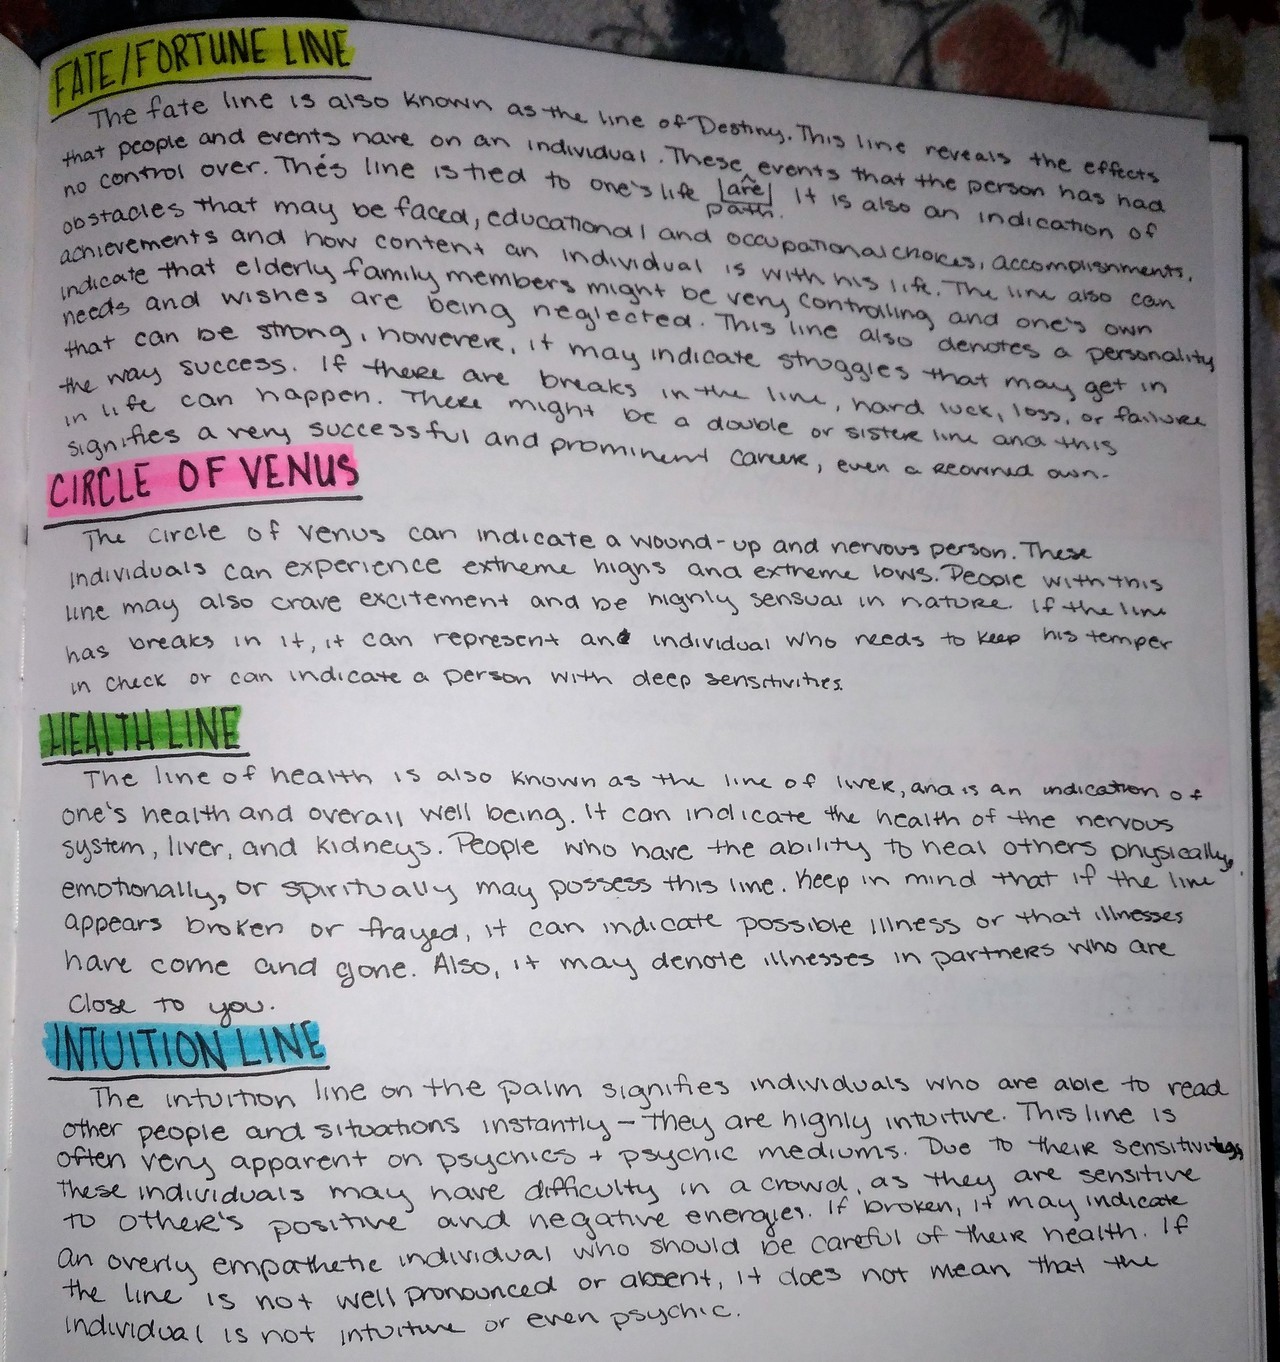 FATE/FORTUNE LINE
The fate line is also known as the line of Destiny. This line reveals the effects
that people and events have on an individual. These ^ events that the person has had
[are]
no control over. This line is tied to one's life path. It is also an indication of
obstacles that may be faced, educational and occupational choices, accomplishments,
achievements and how content an individual is with his life. The line also can
indicate that elderly family members might be very controlling and one's own
needs and wishes are being neglected. This line also denotes a personality
that can be strong, however, it may indicate struggles that may get in
the way success. If there are breaks in the line, hard luck, loss, or failure
in life can happen. There might be a double or sister line and this
signifies a very successful and prominent career, even a renowned own.
CIRCLE OF VENUS
The circle of Venus can indicate a wound-up and nervous person. These
individuals can experience extreme highs and extreme lows. People with this
line may also crave excitement and be highly sensual in nature. If the line
has breaks in it, it can represent and individual who needs to keep his temper
in check or can indicate a person with deep sensitivities.
HEALTH LINE
The line of health is also known as the line of liver, and is an indication of
one's health and overall well being. It can indicate the health of the nervous
system, liver, and kidneys. People who have the ability to heal others physically,
emotionally, or spiritually may possess this line. Keep in mind that if the line
appears broken or frayed, it can indicate possible illness or that illnesses
have come and gone. Also, it may denote illnesses in partners who are
close to you.
INTUITION LINE
The intuition line on the palm signifies individuals who are able to read
other people and situations instantly – they are highly intuitive. This line is
often very apparent on psychics + psychic mediums. Due to their sensitivities,
these individuals may have difficulty in a crowd, as they are sensitive
to other's positive and negative energies. If broken, it may indicate
an overly empathetic individual who should be careful of their health. If
the line is not well pronounced or absent, it does not mean that the
individual is not intuitive or even psychic.